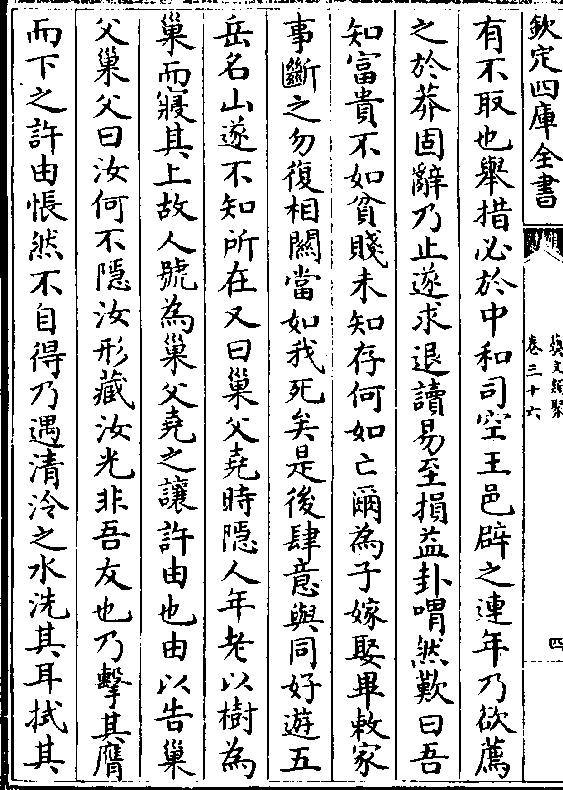 欽定四庫全書
藝文類聚
卷三十六
四
有不取也舉措必於中和司空王邑辟之連年乃欲薦
之於莽固辭乃止遂求退讀易至損益卦喟然歎曰吾
知富貴不如貧賤未知存何如亡爾為子嫁娶畢敕家
事斷之勿復相關當如我死矣是後肆意與同好遊五
岳名山遂不知所在又曰巢父堯時隱人年老以樹為
巢而寢其上故人號為巢父堯之讓許由也由以告巢
父巢父曰汝何不隱汝形藏汝光非吾友也乃擊其膺
而下之許由悵然不自得乃遇清泠之水洗其耳拭其